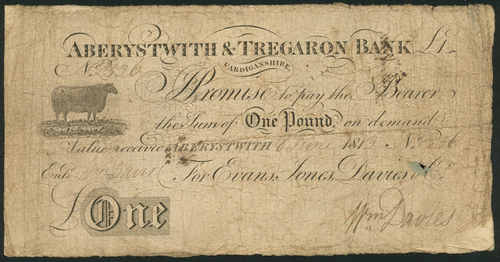 ABERYSTWITH & TREGARON BANK £1
CARDIGANSHIRE.
No. 2326
I Promise to pay the Bearer
the Sum of One Pound, on demand
Value received ABERYSTWITH June 181 No.
Entd. For Evans, Jones, Davies & Co.
£ One
Wm Davies